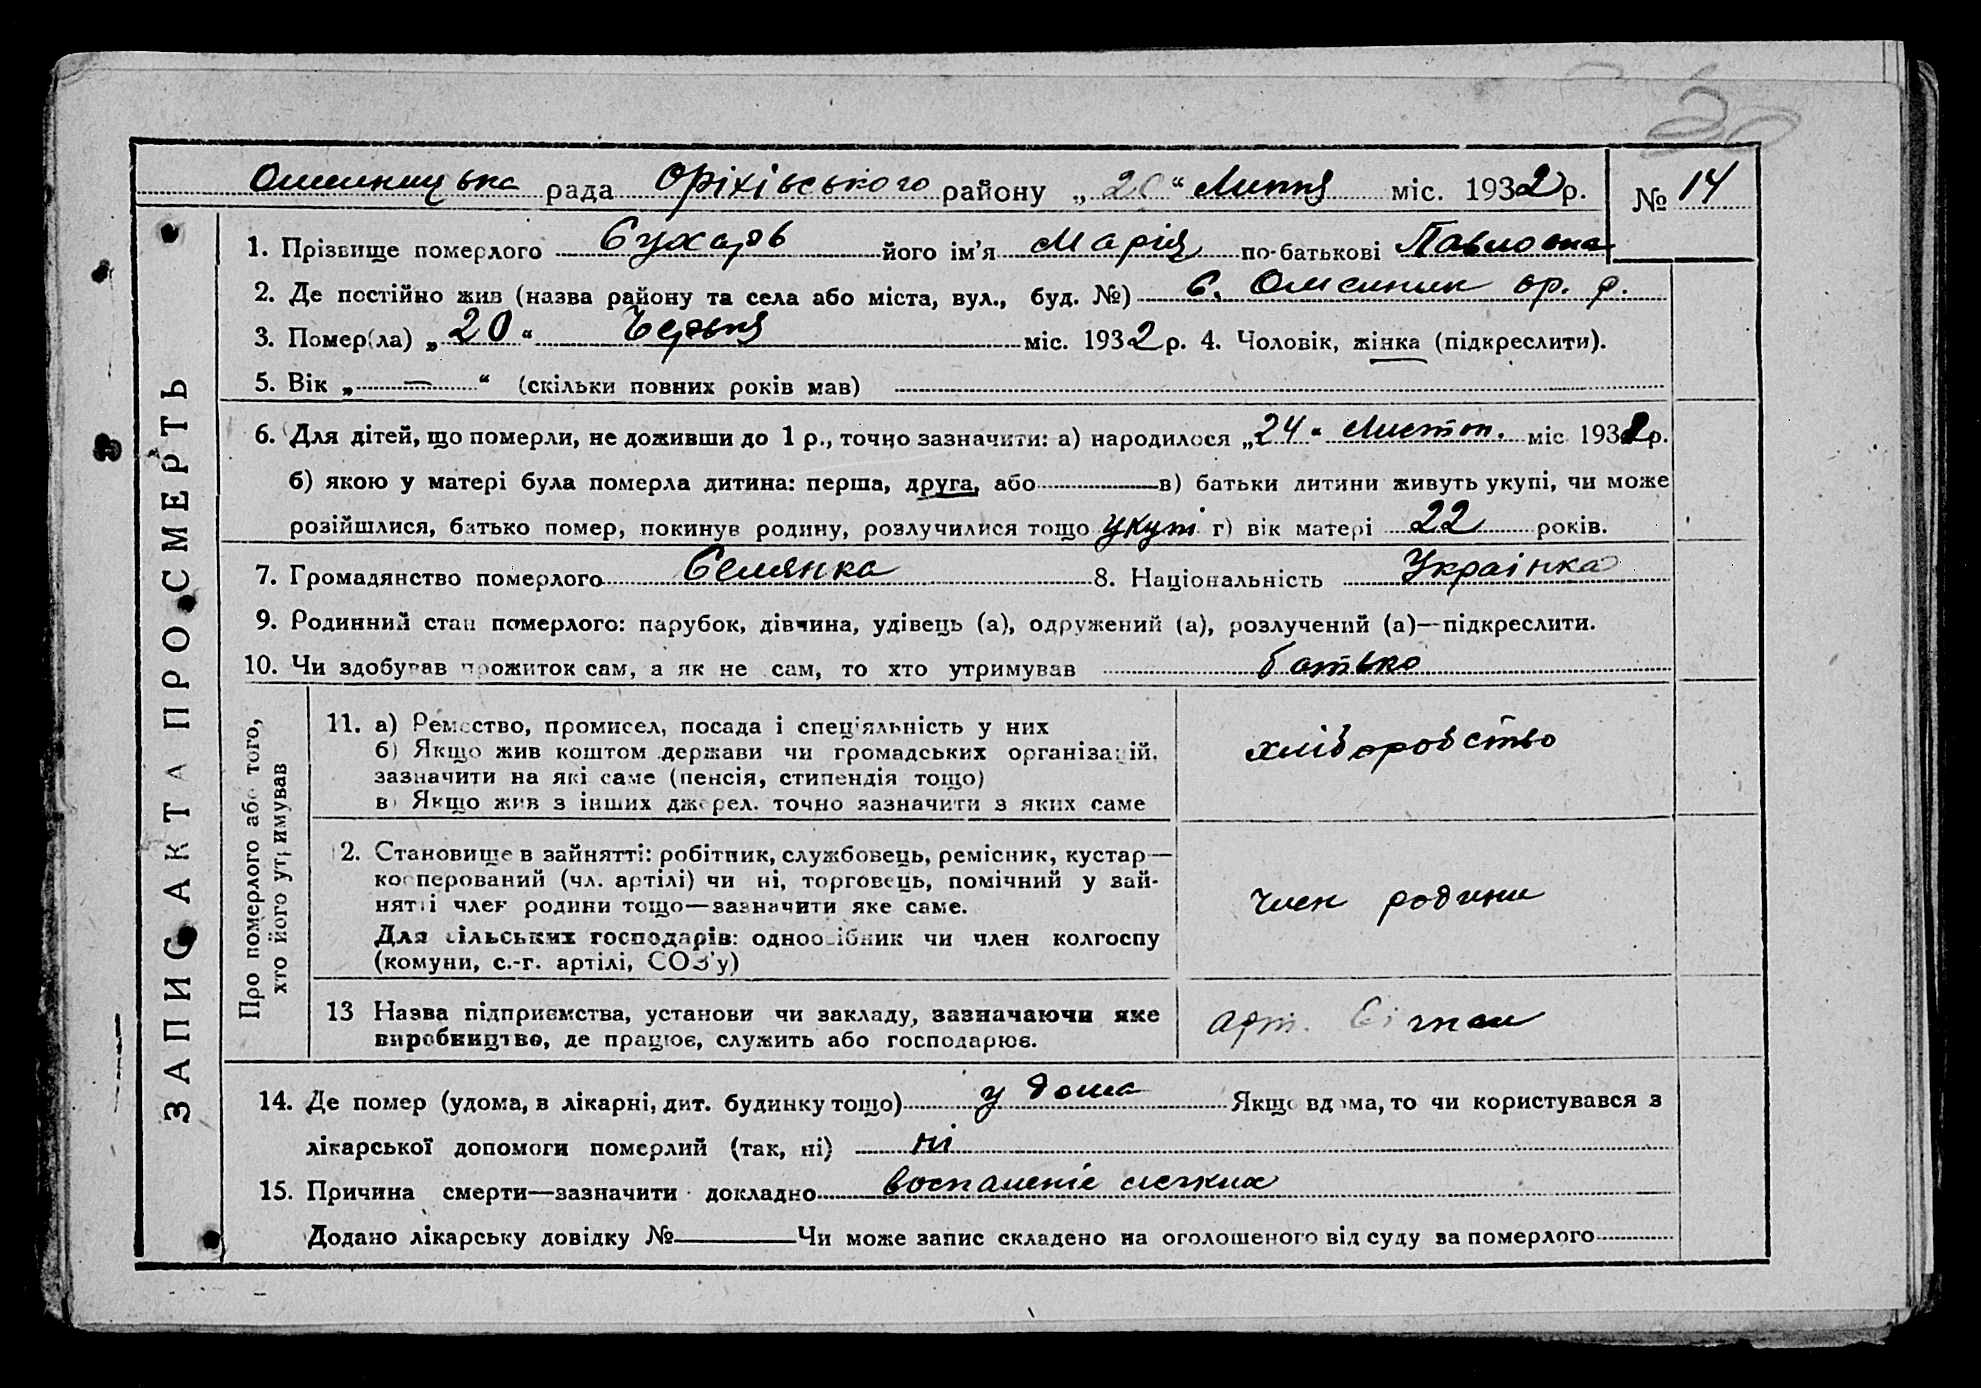 30
Омельницька рада Оріхівського району „20“ Липня міс. 1932 р. № 14
ЗАПИС АКТА ПРО СМЕРТЬ
1. Прізвище померлого Сухарь його ім'я Марія по-батькові Павловна
2. Де постійно жив (назва району та села або міста, вул., буд. №) С. Омельник ор. р.
3. Помер(ла) „20“ Червня міс. 1932 р. 4. Чоловік, жінка (підкреслити).
5. Вік „—“ (скільки повних років мав)
6. Для дітей, що померли, не доживши до 1 р., точно зазначити: а) народилося „24“ Листоп. міс 193 р.
б) якою у матері була померла дитина: перша, друга, або в) батьки дитини живуть укупі, чи може
розійшлися, батько помер, покинув родину, розлучилися тощо укупі г) вік матері 22 років.
7. Громадянство померлого Селянка 8. Національність Українка
9. Родинний стан померлого: парубок, дівчина, удівець (а), одружений (а), розлучений (а)—підкреслити.
10. Чи здобував прожиток сам, а як не сам, то хто утримував батько
Про померлого або того,
хто його утримував
11. а) Ремество, промисел, посада і спеціяльність у них
б) Якщо жив коштом держави чи громадських організацій,
зазначити на які саме (пенсія, стипендія тощо)
в) Якщо жив з інших джерел. точно зазначити з яких саме
хліборобство
12. Становище в зайнятті: робітник, службовець, ремісник, кустар—
кооперований (чл. артілі) чи ні, торговець, помічний у зай-
нятті член родини тощо—зазначити яке саме.
Для сільських господарів: одноосібник чи член колгоспу
(комуни, с.-г. артілі, СОЗ'у)
член родини
13 Назва підприємства, установи чи закладу, зазначаючи яке
виробництво, де працює, служить або господарює.
арт.
14. Де помер (удома, в лікарні, дит. будинку тощо) у дома Якщо вдома, то чи користувався з
лікарської допомоги померлий (так, ні) ні
15. Причина смерти—зазначити докладно воспаленіе легких
Додано лікарську довідку № Чи може запис складено на оголошеного від суду за померлого